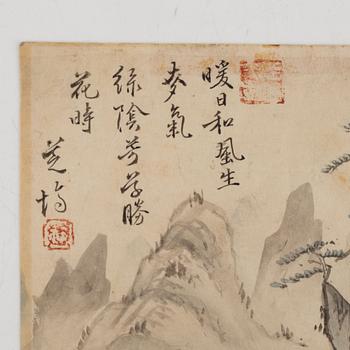 暖日和風生
麥氣
綠陰芳草勝
花時
芝塢